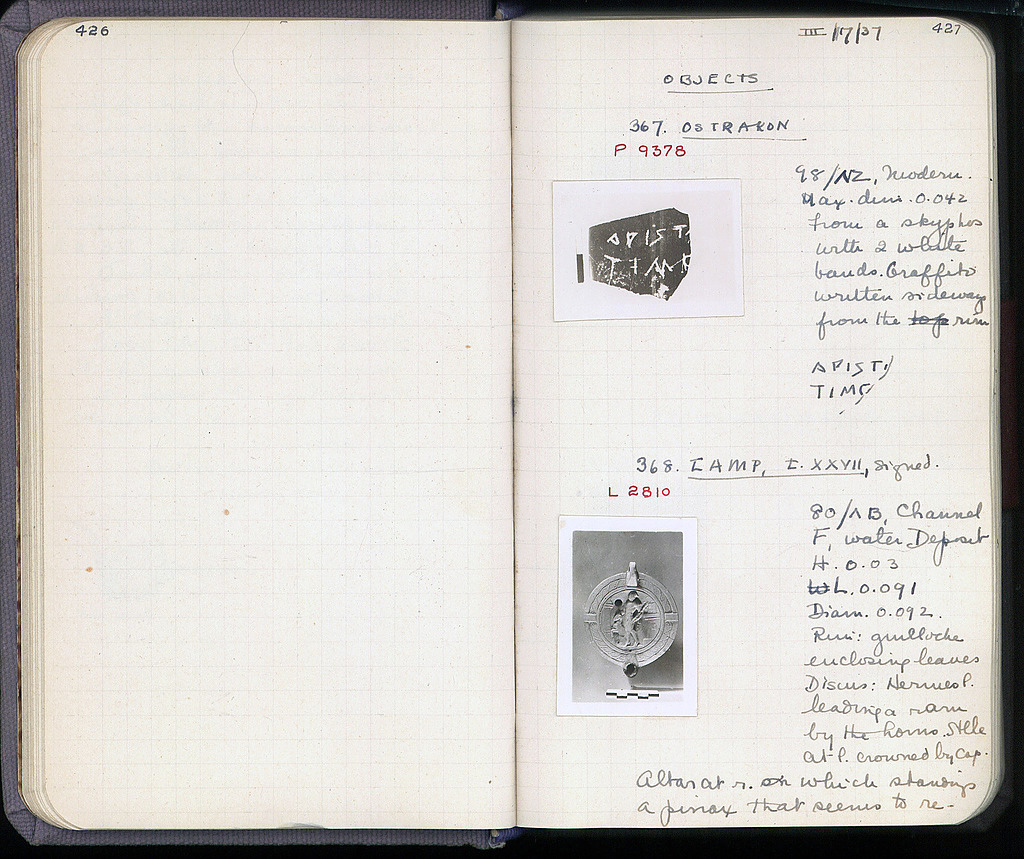 426
III/17/37 427
OBJECTS
367. OSTRAKON
P 9378
98/ΝΖ, Modern.
Max. dim. 0.042
from a skyphos
with 2 white
bands. Graffito
written sideways
from the top rim
ΑΡΙΣΤ
ΤΙΜΟ
ΑΡΙΣΤ
ΤΙΜ
368. LAMP, T. XXVII, signed.
L 2810
80/ΛΒ, Channel
F, water Deposit
H. 0.03
W L. 0.091
Diam. 0.092.
Rim: guilloche
enclosing leaves
Discus: Hermes l.
leading a ram
by the horns. Stele
at l. crowned by cap.
Altar at r. on which standing
a pinax that seems to re-